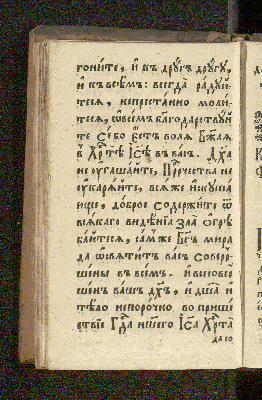 гони́те, и҆ къ дрꙋ́гъ дрꙋ́гꙋ,
и҆ къ всѣ̑мъ: всегда̀ ра́дꙋй
теся, непреста́нно моли́
теся, ѡ҆ все́мъ бл҃годарствꙋй
те се́ бо є҆́сть воля бж҃ая
ѡ҆ хрⷭ҇тѣ̀ і҆и҃сѣ въ васъ. дх҃а
не ѹ҆гаша́йте, прⷪ҇ро́чества не
ѹ҆кора́йте, вся́ же и҆скꙋша
юще, до́брое содержи́те ѿ
вся́каго ви́дѣнїя ѕла̀ ѡ҆гре
ба́йтеся, са́мъ же бг҃ъ ми́ра
да ѡ҆святи́тъ васъ соверꙿ
ше́ны въ всѣ́мъ. и҆ всесове́р
ше́нъ ва́шъ дх҃ъ, и҆ дш҃а̀ и҆
тѣ́ло непоро́чно во прише́
ствїе гдⷭ҇а на́шего і҆и҃са хрⷭ҇та̀